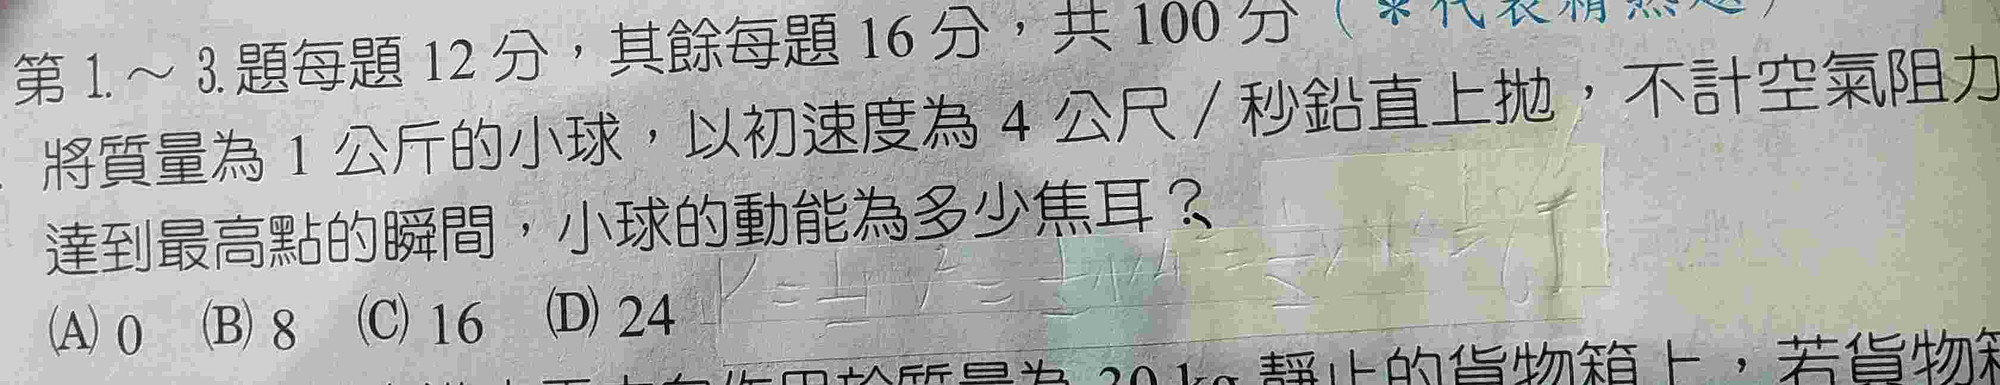 第 1. ~ 3. 題每題 12 分，其餘每題 16 分，共 100 分（＊代表精熟題）
將質量為 1 公斤的小球，以初速度為 4 公尺／秒鉛直上拋，不計空氣阻力
達到最高點的瞬間，小球的動能為多少焦耳？
(A) 0 (B) 8 (C) 16 (D) 24
質量為 20 kg 靜止的貨物箱上，若貨物箱